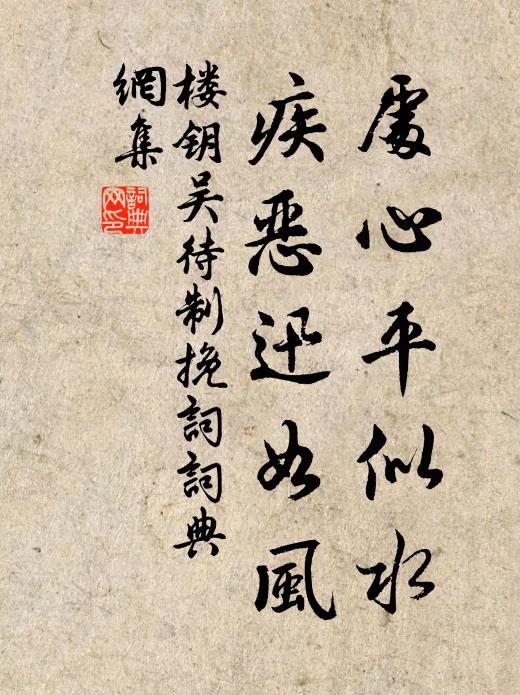 處心平似水
疾惡迅如風
楼钥吴待制挽詞詞典
網集
詞典网印